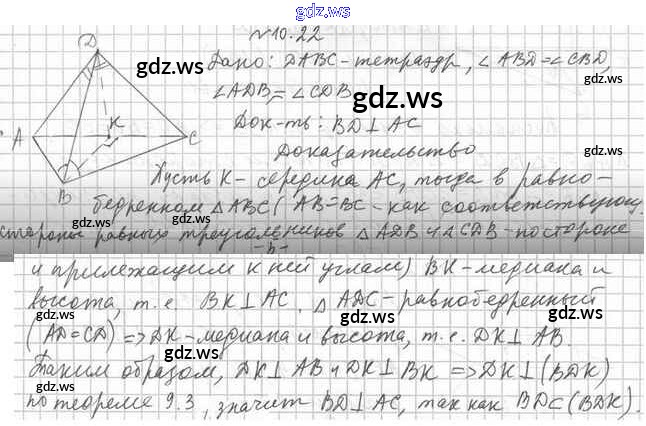 gdz.ws
№10.22
D
Дано: DABC-тетраэдр, ∠ABD=∠CBD,
gdz.ws
∠ADB=∠CDB
gdz.ws
Док-ть: BD⊥AC
A K C
Доказательство
B
Пусть K-середина AC, тогда в равно-
gdz.ws gdz.ws
бедренном △ABC (AB=BC-как соответствующ.
стороны равных треугольников △ADB и △CDB-по стороне
и прилежащим к ней углам) BK-медиана и
gdz.ws gdz.ws
высота, т.е. BK⊥AC. △ADC-равнобедренный
(AD=CD) => DK-медиана и высота, т.е. DK⊥AB.
gdz.ws gdz.ws
Таким образом, DK⊥AB и DK⊥BK => DK⊥(BDK)
по теореме 9.3, значит BD⊥AC, так как BD⊂(BDK).
gdz.ws gdz.ws